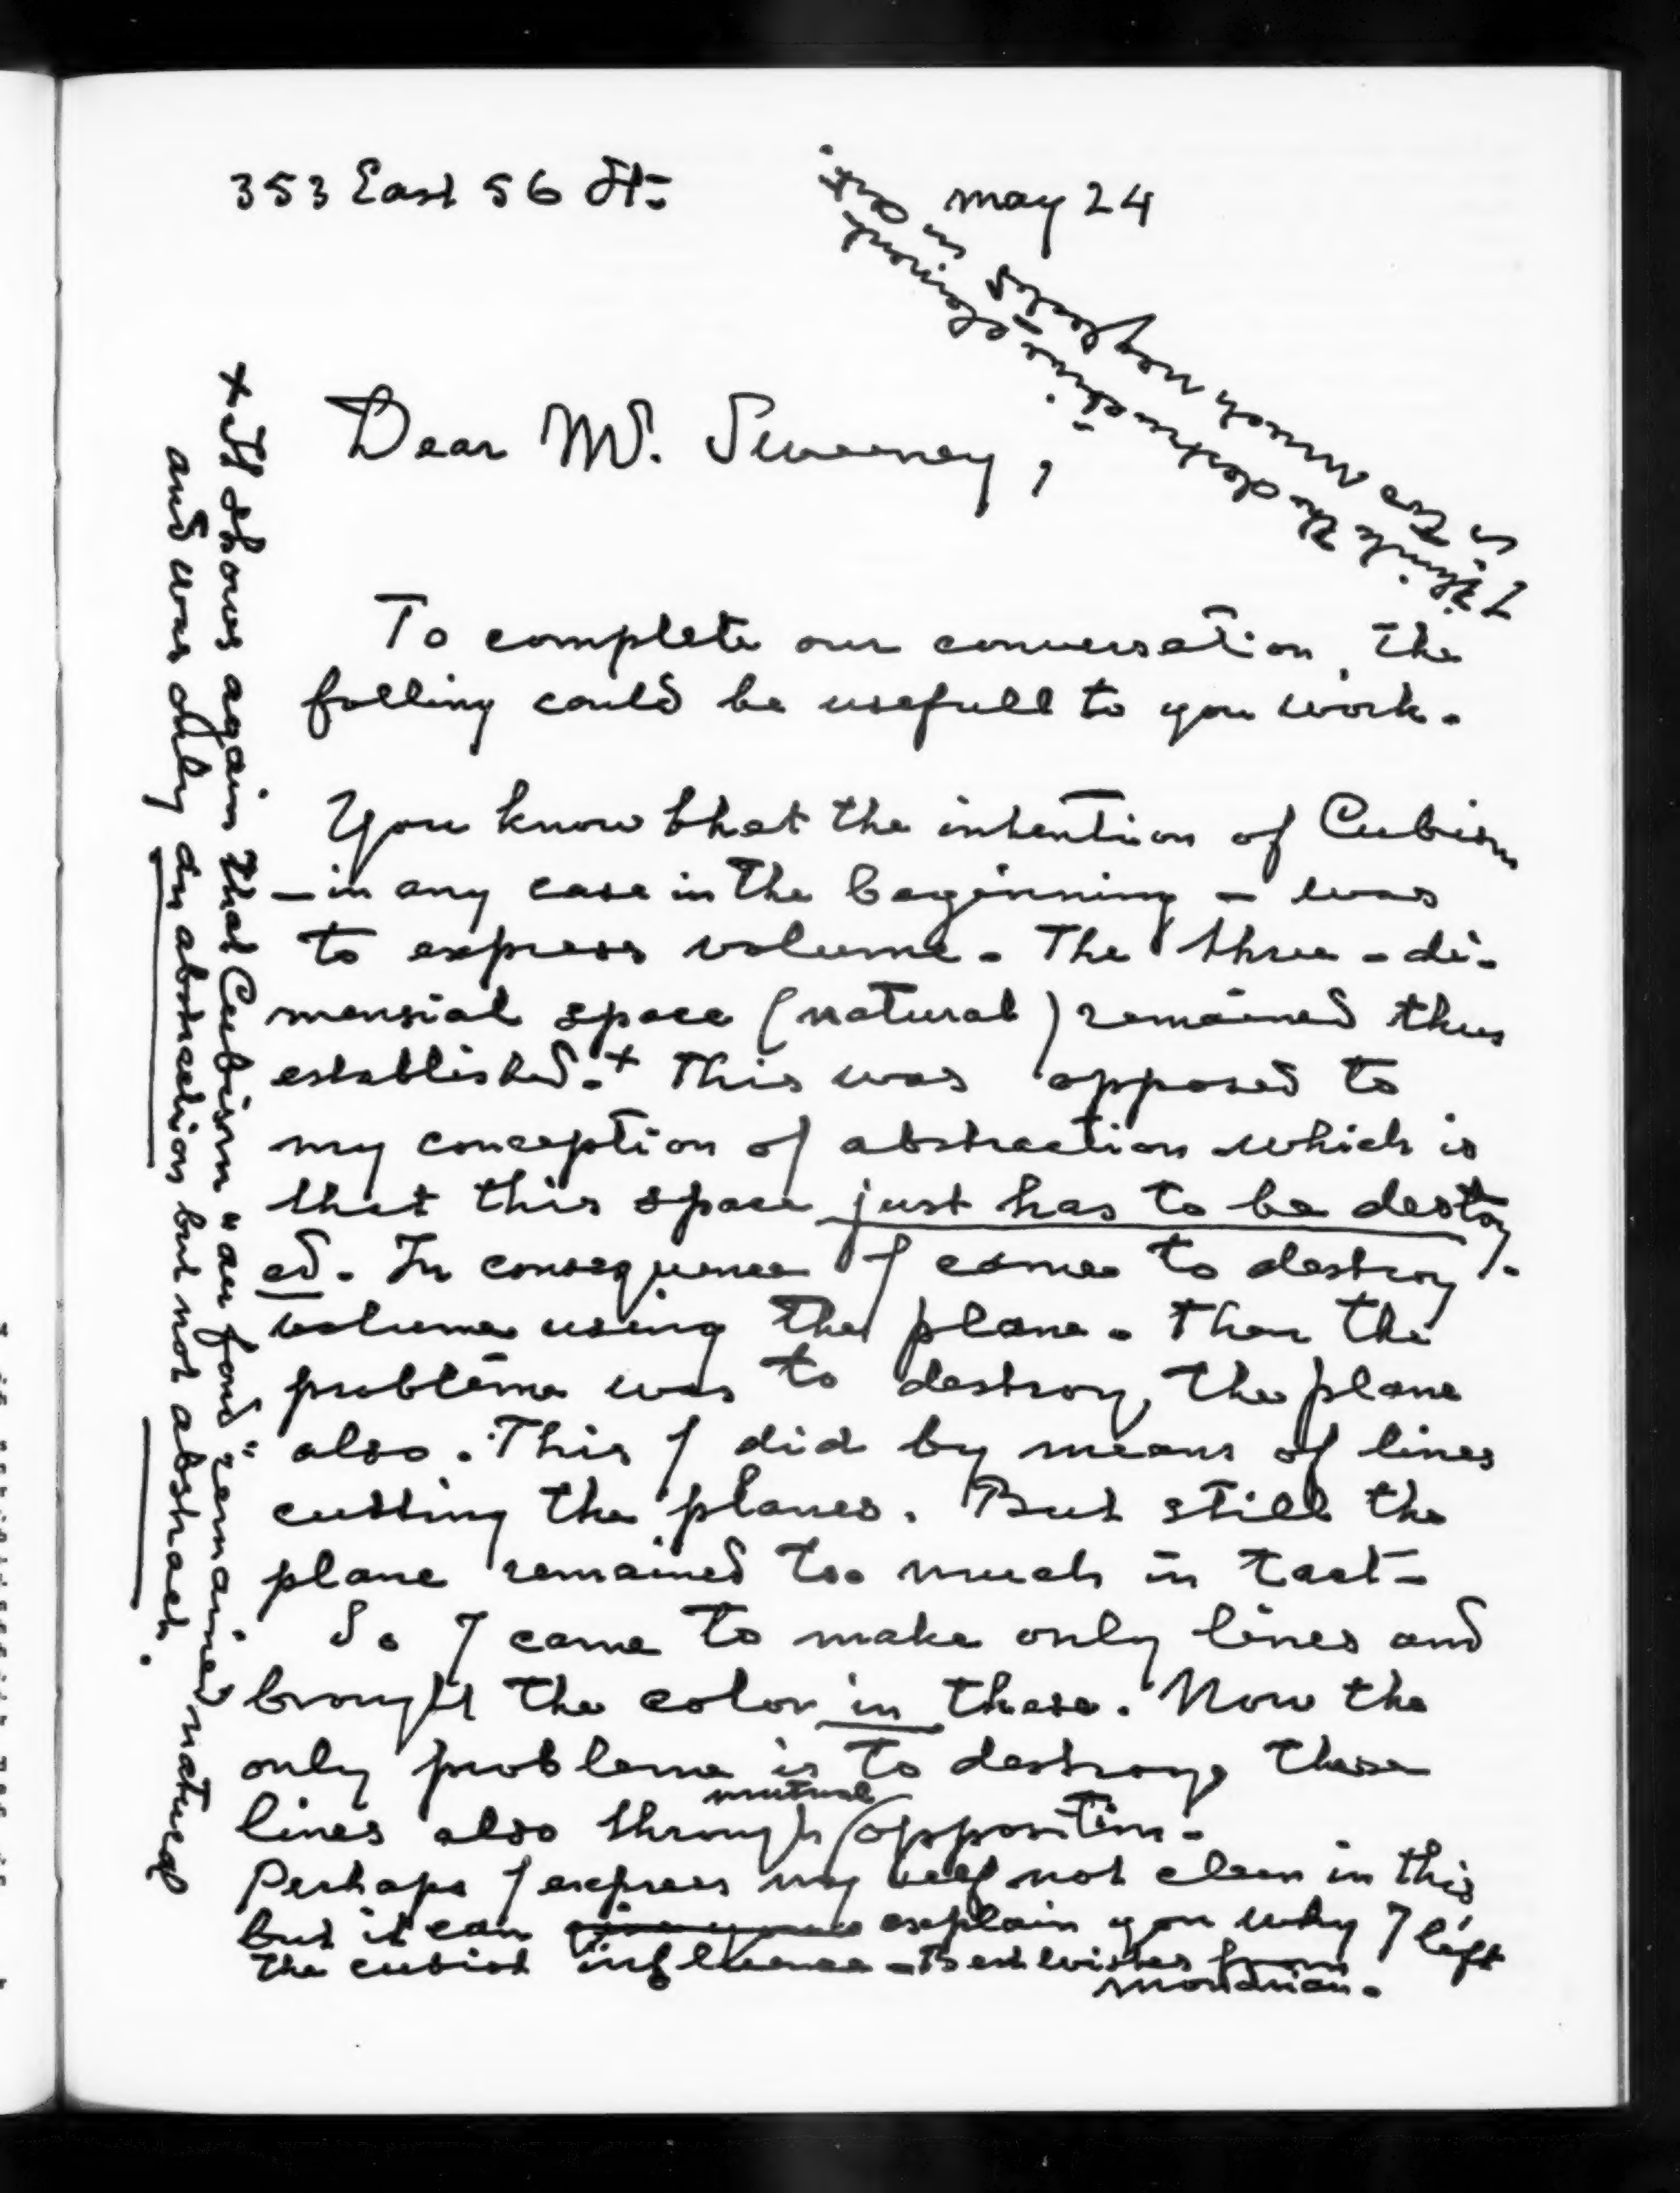 353 East 56 St.
May 24
I think the destructive element
is too much neglected in art.
Dear Mr. Sweeney,
To complete our conversation, the
folling could be usefull to you work.
You know that the intention of Cubism
– in any case in the beginning – was
to express volume. The three-di-
mensial space (natural) remained thus
established.+ This was opposed to
my conception of abstraction which is
that this space just has to be destoy-
ed. In consequence I came to destroy
volume using the plane. Then the
problème was to destroy the plane
also. This I did by means of lines
cutting the planes. But still the
plane remained too much in tact-
So I came to make only lines and
brought the color in these. Now the
only probleme is to destroy these
lines also through mutual opposition.
Perhaps I express my self not clear in this
but it can explain you why I left
the cubist influence – Best wishes from
Mondrian.
+ It shows again that Cubism "au fond" remained natural
and was only an abstraction but not abstract.